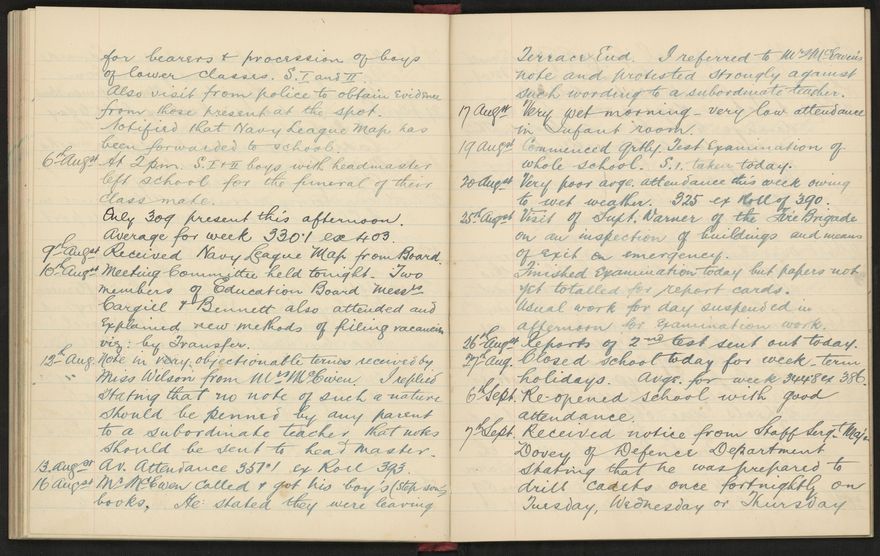 for bearers & procession of boys
of lower classes. S.I and II.
Also visit from police to obtain evidence
from those present at the spot.
Notified that Navy League Map has
been forwarded to school.
6th Augst At 2 pm. S.I & II boys with headmaster
left school for the funeral of their
class mate.
Only 309 present this afternoon.
Average for week 330.1 ex 403.
9th Augst Received Navy League Map from Board.
10th Augst Meeting Committee held tonight. Two
members of Education Board Messrs
Cargill & Bennett also attended and
explained new methods of filling vacancies
viz: by Transfer.
12th Aug. Note in very objectionable terms received by
" Miss Wilson from Mrs McEwen. I replied
stating that no note of such a nature
should be penned by any parent
to a subordinate teacher, that notes
should be sent to head master.
13. Augst Av. Attendance 357.1 ex Roll 393.
16 Augst Mr McEwen called & got his boy's (step son's)
books. He stated they were leaving
Terrace End. I referred to Mrs McEwen's
note and protested strongly against
such wording to a subordinate teacher.
17 Augst Very wet morning - very low attendance
in Infant room.
19 Augst Commenced Qrtly. Test Examination of
whole school. S.1. taken today.
20 Augst Very poor avge. attendance this week owing
to wet weather. 325 ex Roll of 390.
25th Augst Visit of Supt. Warner of the Fire Brigade
on an inspection of buildings and means
of exit on emergency.
Finished Examination today but papers not
yet totalled for report cards.
Usual work for day suspended in
afternoon for examination work.
26th Augst Reports of 2nd test sent out today.
27th Aug. Closed school today for week-term
holidays. Avge. for week 344.8 ex 386.
6th Sept. Re-opened school with good
attendance.
7th Sept. Received notice from Staff Serg-Major
Dovey of Defence Department
stating that he was prepared to
drill cadets once fortnightly on
Tuesday, Wednesday or Thursday